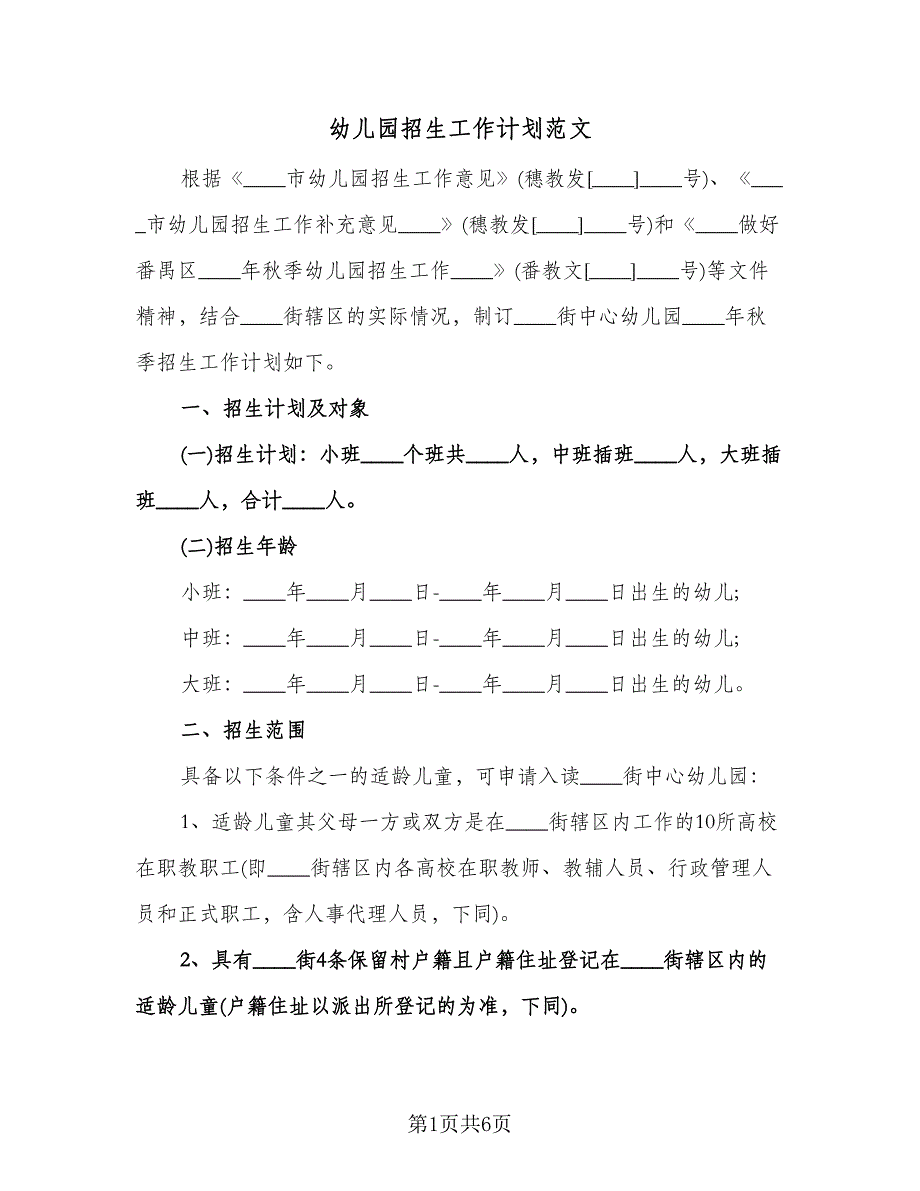 幼儿园招生工作计划范文
根据《____市幼儿园招生工作意见》(穗教发[____]____号)、《___
_市幼儿园招生工作补充意见____》(穗教发[____]____号)和《____做好
番禺区____年秋季幼儿园招生工作____》(番教文[____]____号)等文件
精神，结合____街辖区的实际情况，制订____街中心幼儿园____年秋
季招生工作计划如下。
一、招生计划及对象
(一)招生计划：小班____个班共____人，中班插班____人，大班插
班____人，合计____人。
(二)招生年龄
小班：____年____月____日-____年____月____日出生的幼儿;
中班：____年____月____日-____年____月____日出生的幼儿;
大班：____年____月____日-____年____月____日出生的幼儿。
二、招生范围
具备以下条件之一的适龄儿童，可申请入读____街中心幼儿园：
1、适龄儿童其父母一方或双方是在____街辖区内工作的10所高校
在职教职工(即____街辖区内各高校在职教师、教辅人员、行政管理人
员和正式职工，含人事代理人员，下同)。
2、具有____街4条保留村户籍且户籍住址登记在____街辖区内的
适龄儿童(户籍住址以派出所登记的为准，下同)。
第1页共6页